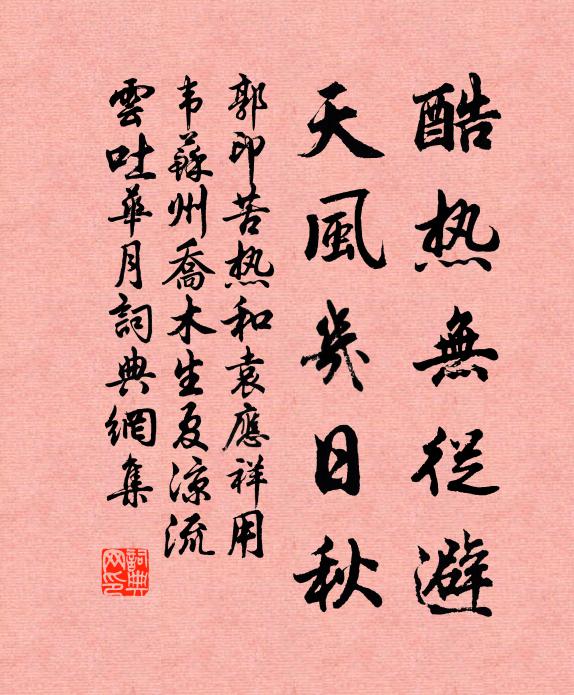 酷热無從避
天風幾日秋
郭印苦热和袁應祥用
韦蘇州喬木生夏凉流
雲吐華月詞典網集
詞典网印